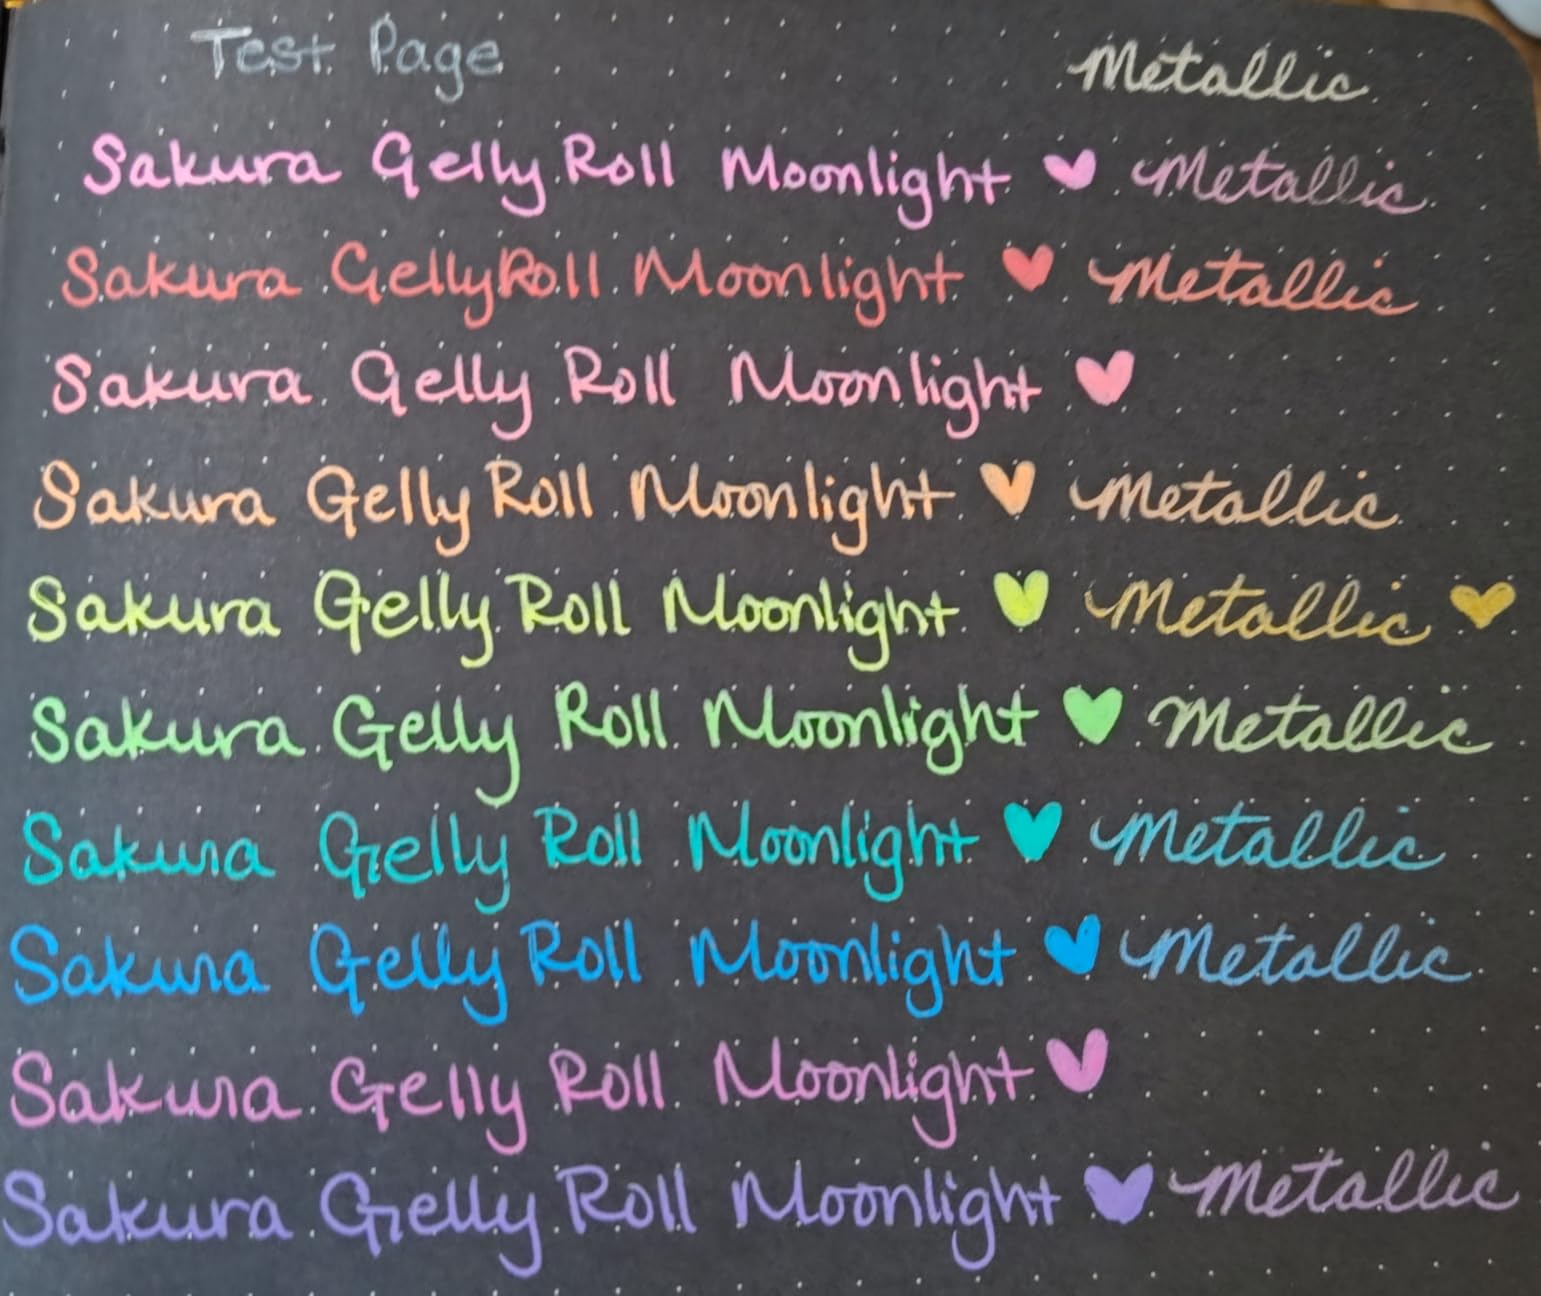 Test Page Metallic
Sakura Gelly Roll Moonlight ♥ Metallic
Sakura Gelly Roll Moonlight ♥ Metallic
Sakura Gelly Roll Moonlight ♥
Sakura Gelly Roll Moonlight ♥ Metallic
Sakura Gelly Roll Moonlight ♥ Metallic ♥
Sakura Gelly Roll Moonlight ♥ Metallic
Sakura Gelly Roll Moonlight ♥ Metallic
Sakura Gelly Roll Moonlight ♥ Metallic
Sakura Gelly Roll Moonlight ♥
Sakura Gelly Roll Moonlight ♥ Metallic